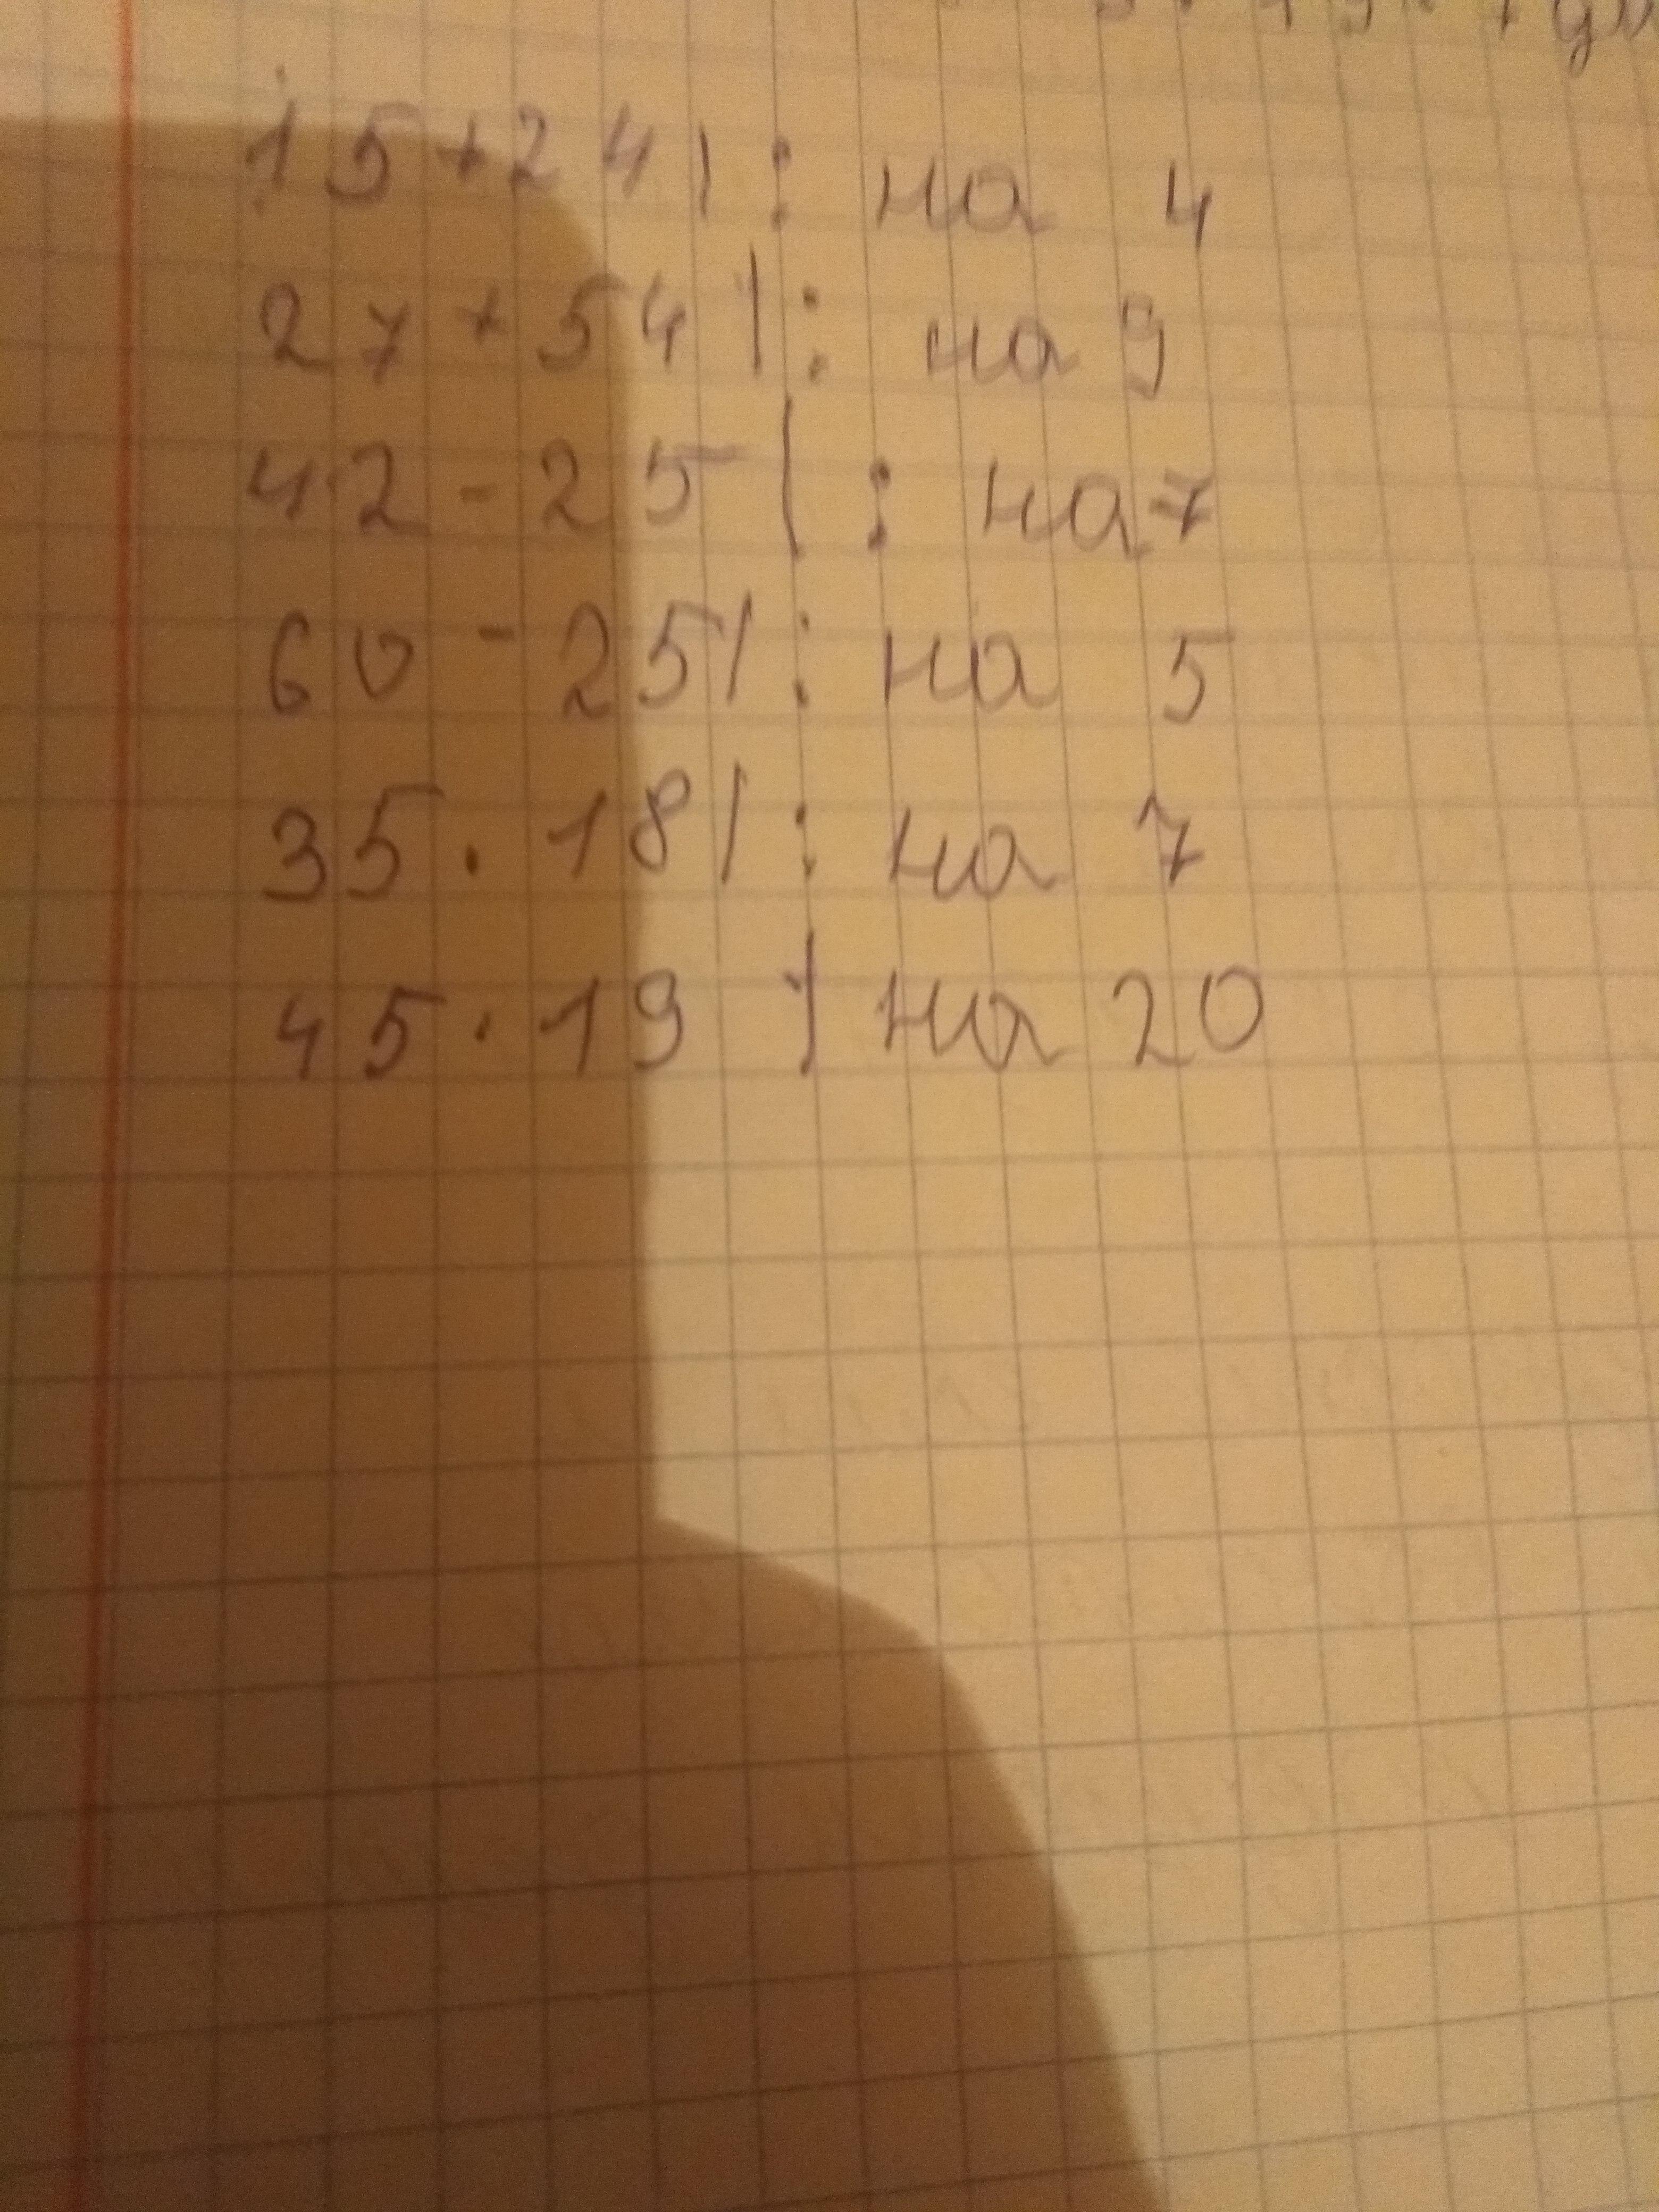 15+24 | : на 4
27+54 | : на 9
42-25 | : на 7
60-25 | : на 5
35·18 | : на 7
45·19 | на 20